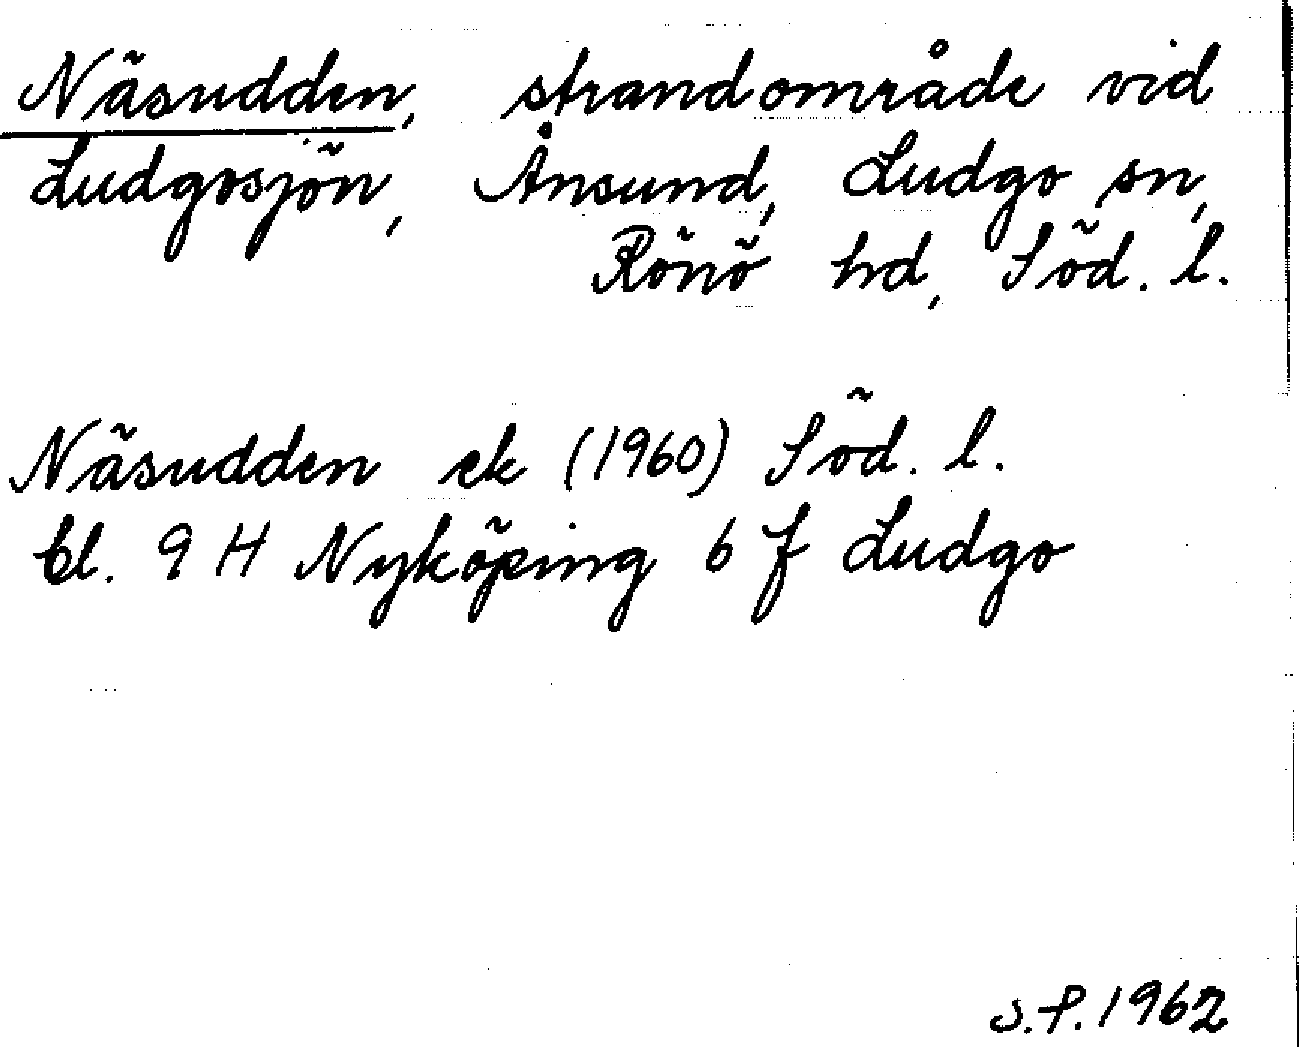 Näsudden, strandområde vid
Ludgosjön, Ånsund, Ludgo sn,
Rönö hd, Söd. l.
Näsudden ek (1960) Söd. l.
bl. 9 H Nyköping 6 f Ludgo
S.P. 1962